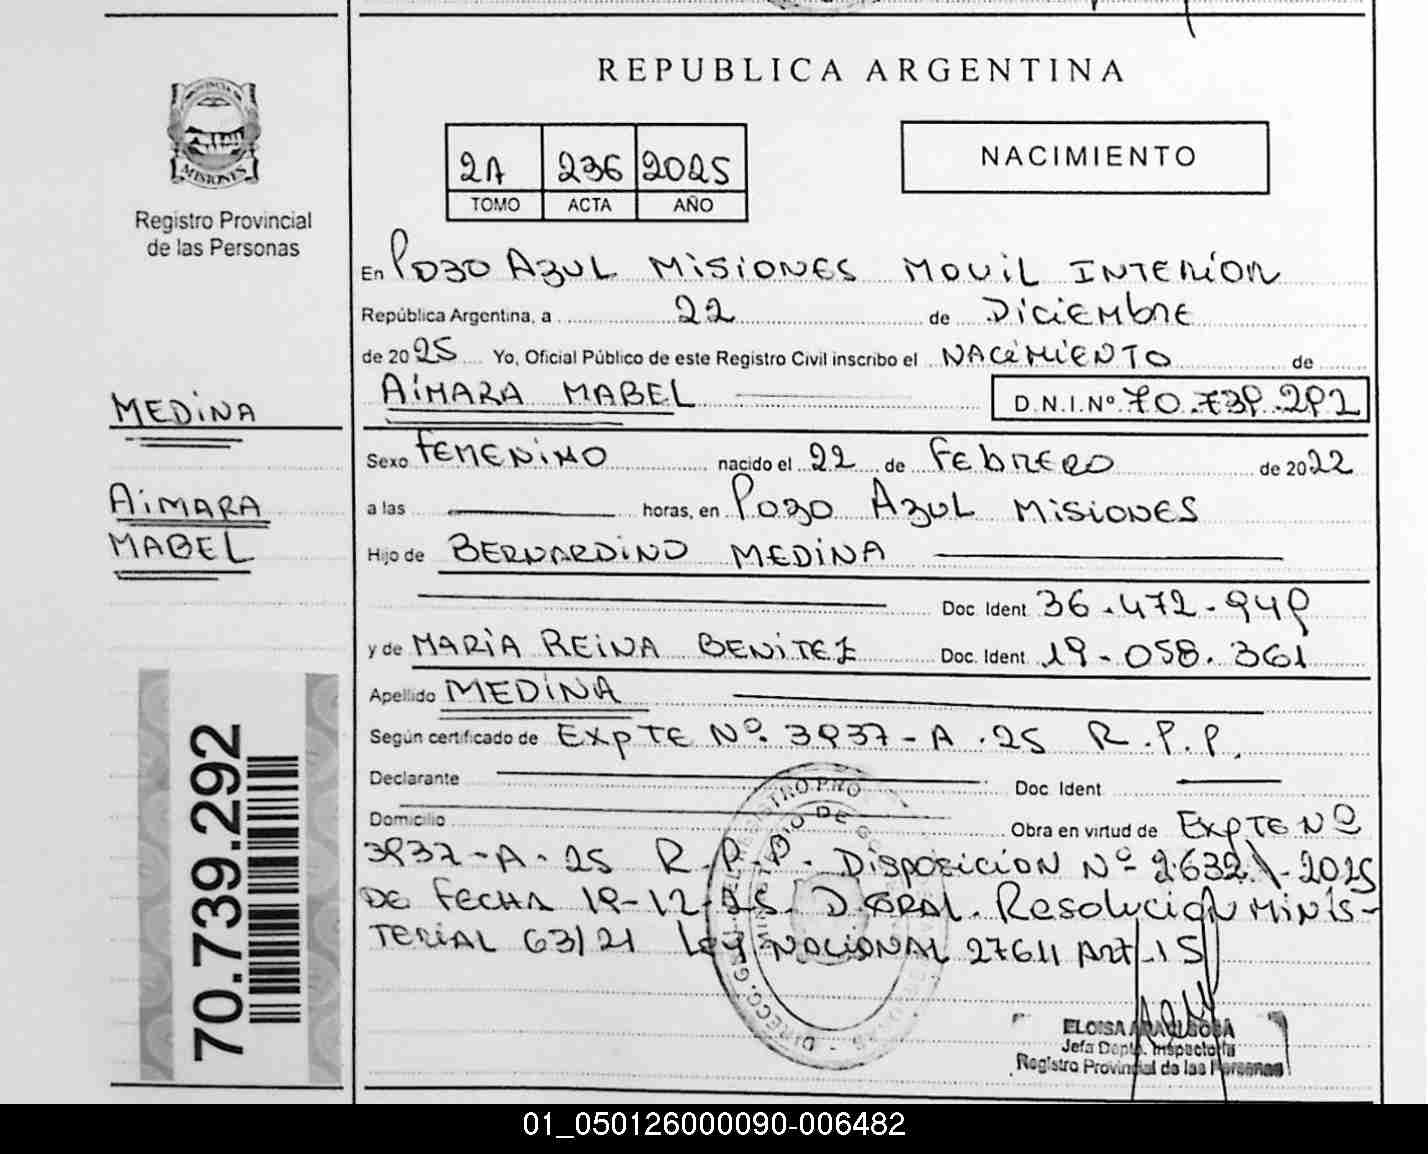 REPUBLICA ARGENTINA
PROVINCIA
MISIONES
Registro Provincial
de las Personas
2A 236 2025
TOMO ACTA AÑO
NACIMIENTO
En Pozo Azul Misiones Movil Interior
República Argentina, a 22 de Diciembre
de 2025 Yo, Oficial Público de este Registro Civil inscribo el NACIMIENTO de
AIMARA MABEL D.N.I.Nº 70.739.292
MEDINA
AIMARA
MABEL
Sexo Femenino nacido el 22 de Febrero de 2022
a las horas, en Pozo Azul Misiones
Hijo de BERNARDINO MEDINA
Doc. Ident 36.472.949
y de MARÍA REINA BENITEZ Doc. Ident 19.058.361
Apellido MEDINA
Según certificado de Expte Nº 3937-A-25 R.P.P.
Declarante Doc. Ident
Domicilio Obra en virtud de Expte Nº
3937-A-25 R.P.P. Disposicion Nº 2632-2025
De fecha 19-12-25 D. GRAL. Resolucion Minis-
terial 63/21 Ley Nacional 27611 Art. 15
70.739.292
ELOISA
Jefa Depto. Inspectoría
Registro Provincial de las Personas
01_050126000090-006482